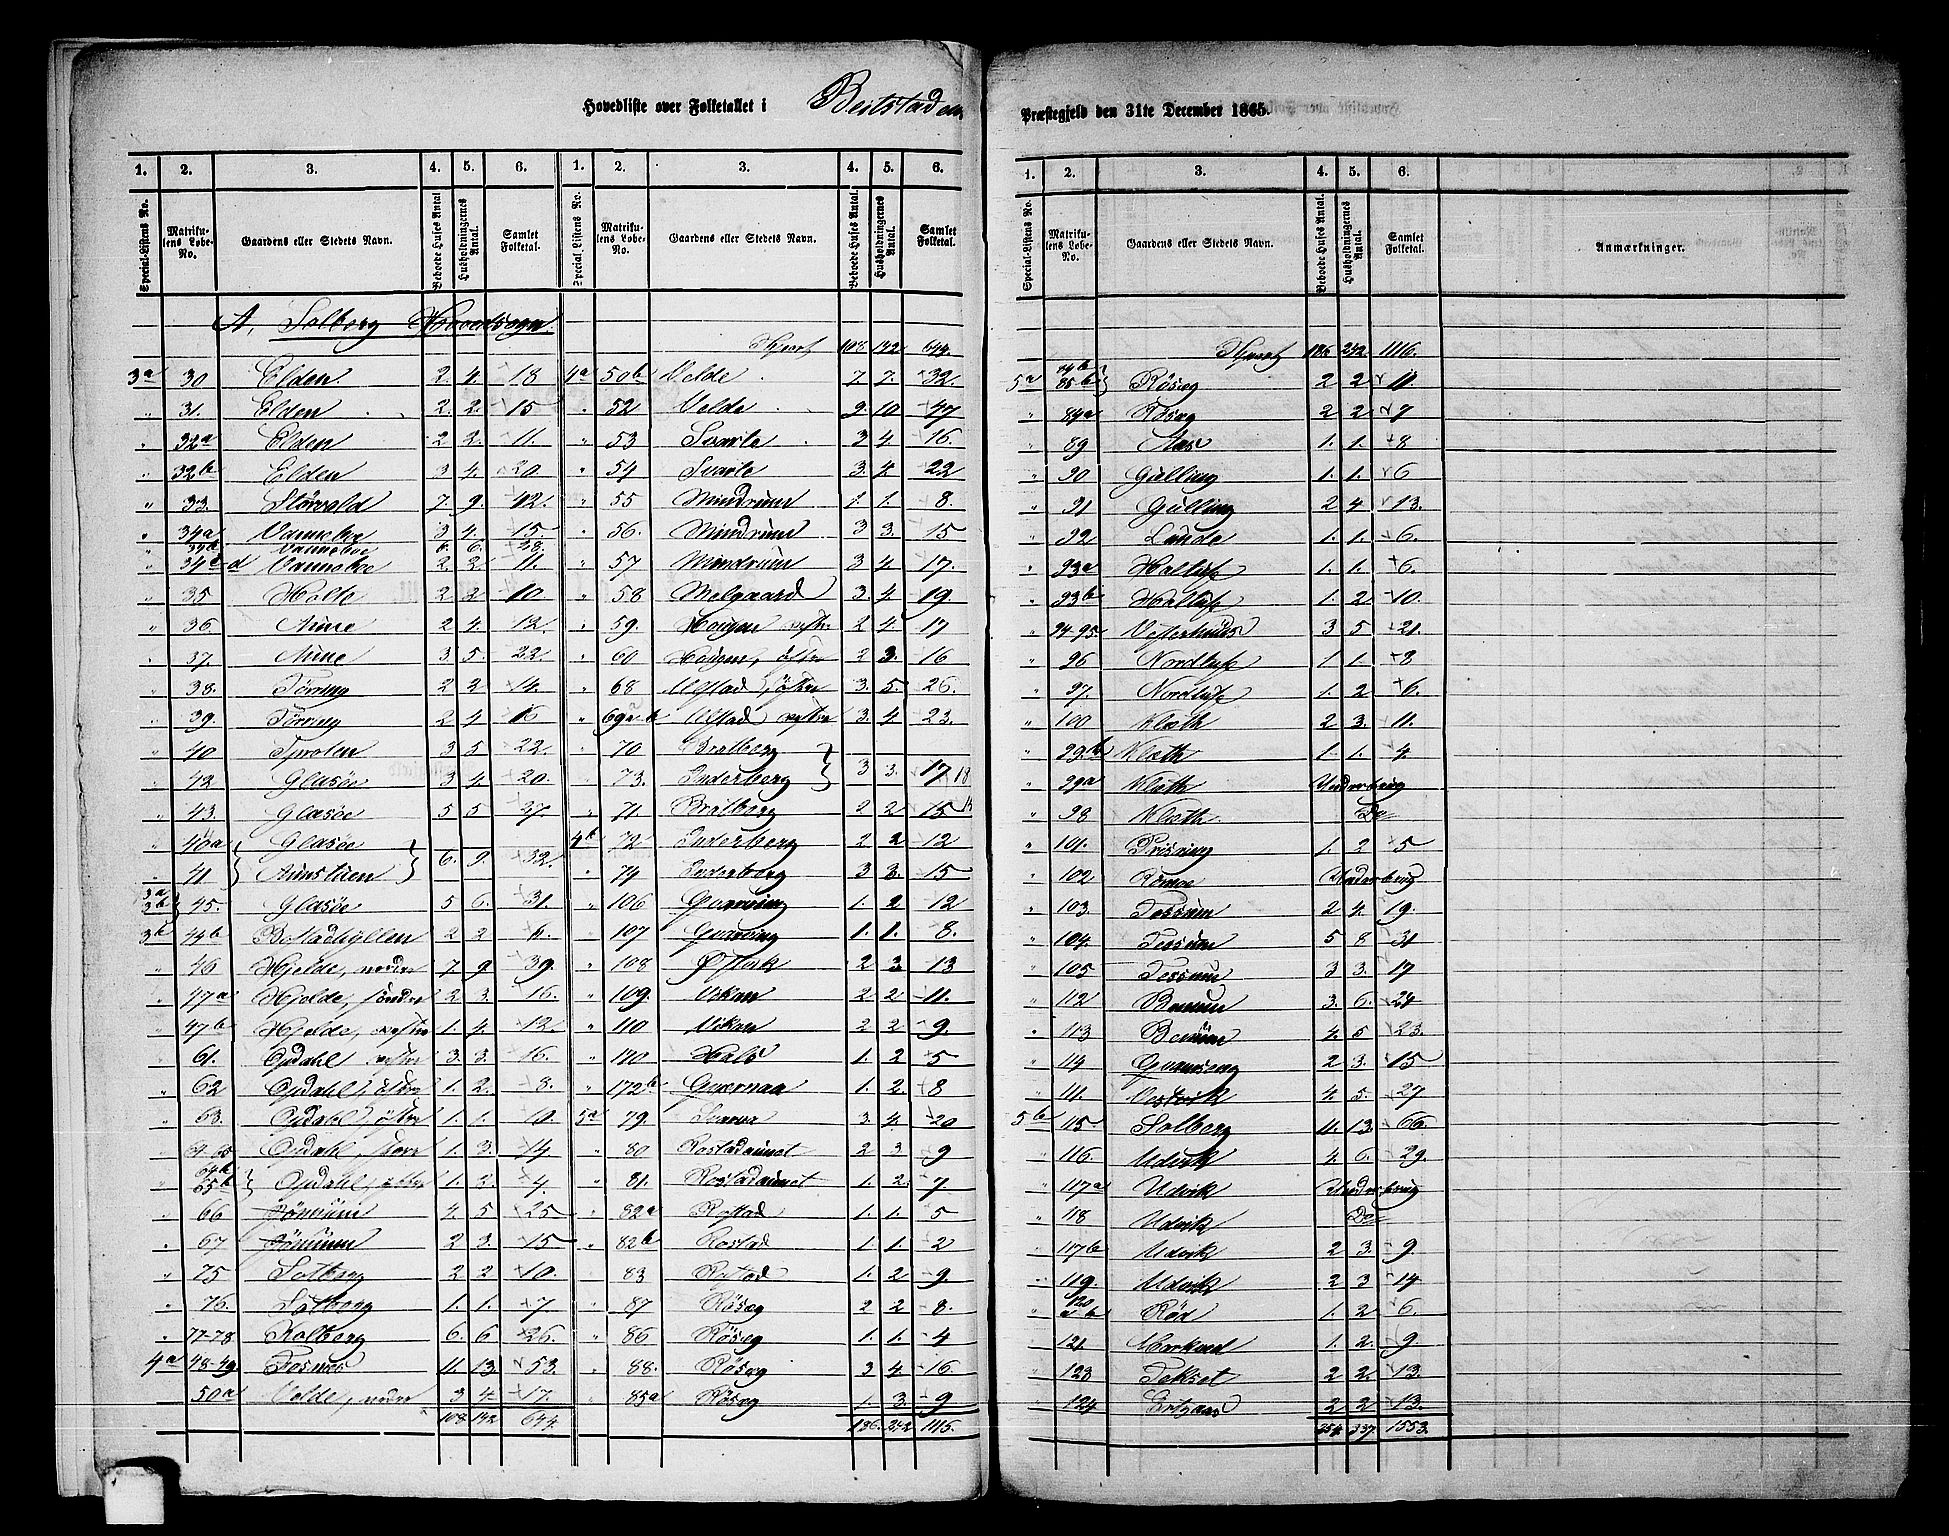 Hovedliste over Folketallet i Beitstaden
Præstegjeld den 31te December 1865.
1. 2. 3. 4. 5. 6. 1. 2. 3. 4. 5. 6.
Special-Listens No. Matrikulens Løbe-No. Gaardens eller Stedets Navn. Beboede Huses Antal Husholdningernes Antal. Samlet Folketal. Special Listens No. Matrikulens Løbe-No. Gaardens eller Stedets Navn. Beboede Huses Antal. Husholdningernes Antal. Samlet Folketal.
A, Solberg Hovedsogn.
3a 30 Elden 2. 4. 18
" 31. Elden 2. 2. 15
" 32a Elden 2 2. 11.
" 32b Elden 3 4. 20.
" 33. 7. 9. 42.
" 34a Vanneboe 3 4. 15.
Vanneboe 6. 6. 28.
" d Vanneboe 2 2 11.
" 35 Holte 2 2 10
" 36. Aune 2 4. 12.
" 37. Aune 3. 5. 22.
" 38. Tørring 2 2 14.
" 39. Tørring 2 4. 16
" 40 3 5 22.
" 42 Glasøe 3 4. 20.
" 43. Glasøe 5 5 27.
Glasøe
" 41 Aunstuen 6. 9. 32.
3a 3b 45. Glasøe 5 6. 31.
3b 44b Bostadhyllen 2 2 6.
" 46 Hjelde, nedre 7. 9 39.
" 47a Hjelde, søndre 2. 3. 16.
" 47b Hjelde, vestre 1. 4. 12.
61. Opdahl vestre 3. 3. 16.
" 62 Opdahl, østre 1. 2. 8.
" 63. Opdahl, østre 1. 1. 10.
64-65 Opdahl, store 1. 3. 14
" 64b 65b Opdahl, østre 1. 2. 4.
66 4. 5 25
" 67 2 3. 15.
" 75 Solberg 2 2 10.
" 76. Solberg 1. 1. 7.
" 77-78. Kolberg 6. 6 26.
4a 48-49 Fosnes 11. 13. 53.
50a Velde, nedre 3 4. 17.
108 142 644.
Transport 108 142 644.
4a 50b Velde 7. 7. 32.
" 52 Velde 9. 10 47
" 53 Svarte 3 4. 16.
" 54 Svarte 3. 4 22
" 55 Mindrum 1. 1. 8.
" 56. Mindrum 3 3. 15
" 57 Mindrum 3 4. 17.
" 58 Melgaard 3. 4. 19
" 59. Haugan vestre 2 4. 17
" 60 Haugen, østre 2 3. 16
" 68 Ulstad, østre 3. 5. 26.
" 69a-b Ulstad vestre 3. 4 23.
" 70 Bratberg
" 73. Enderberg 3 3. 17 18
" 71. Bratberg 2 2 15
4b 72 Enderberg 2 2 12
" 74 Enderberg 3 3. 15
" 106 Qvarving 1. 2 12
" 107 Qvarving 1. 1. 8.
" 108 Østvik 2 3 13
" 109. Vikan 2 2 11.
" 110 Vikan 2 2 9.
" 170 Hals 1. 2 5
" 172b Qvernaa 1. 2. 8
5a 79. 3 4. 20
" 80 Rostadaunet 2 3 9
" 81. Rostadaunet 1. 2. 7
" 82a Rostad 1. 1. 5
" 82b Rostad 1. 1. 2
" 83 Rostad 1. 2 9
" 87 Røseg 2 2 8.
" 86 Røseg 1. 1. 4
" 88. Røseg 3 4. 16
85a Røseg 1. 3. 9
186. 242 1115.
1. 2. 3. 4. 5. 6.
Special-Listens No. Matrikulens Løbe-No. Gaardens eller Stedets Navn. Beboede Huses Antal. Husholdningernes Antal. Samlet Folketal. Anmærkninger.
Transport 186 242 1116.
5a 84b 85b Røseg 2 2 11.
" 84a Røseg 2 2 7
" 89 Aas 1. 1. 8
" 90 Gulling 1. 1. 6
" 91 Gulling 2 4. 13.
" 92 Lunde 1. 1. 6.
" 93a Holtuft 1. 1. 6.
" 93b Holtuft 1. 2 10.
" 94-95. 3 5 21.
" 96 Nordtuft 1 1. 8
" 97. Nordtuft 1. 2 6.
" 100 Kleth 2 3. 11.
" 99b Kleth 1. 1. 4
" 99a Kleth Underbrug
" 98 Kleth Do
" 101. Prisning 1. 2 5
" 102 Underbrug
" 103. Tessum 2 4. 19.
" 104. Tessum 5 8 31
" 105 Tessum 3 3. 17
" 112 Benum 3. 6. 24
" 113 Benum 4. 5 23.
" 114 2 3. 15
" 111. Vestvik 4 5. 27
5b 115 Solberg 11. 13. 66.
" 116. Udvik 4. 6. 29.
" 117a Udvik Underbrug
" 118 Udvik Do
" 117b Udvik 2 3. 9.
" 119. Udvik 2 3 14
" 120 a b Rød 1. 2 6.
" 121. 1. 2. 9.
" 123 Tekset 2 2. 13.
" 124 2 2 13.
254. 337. 1553.